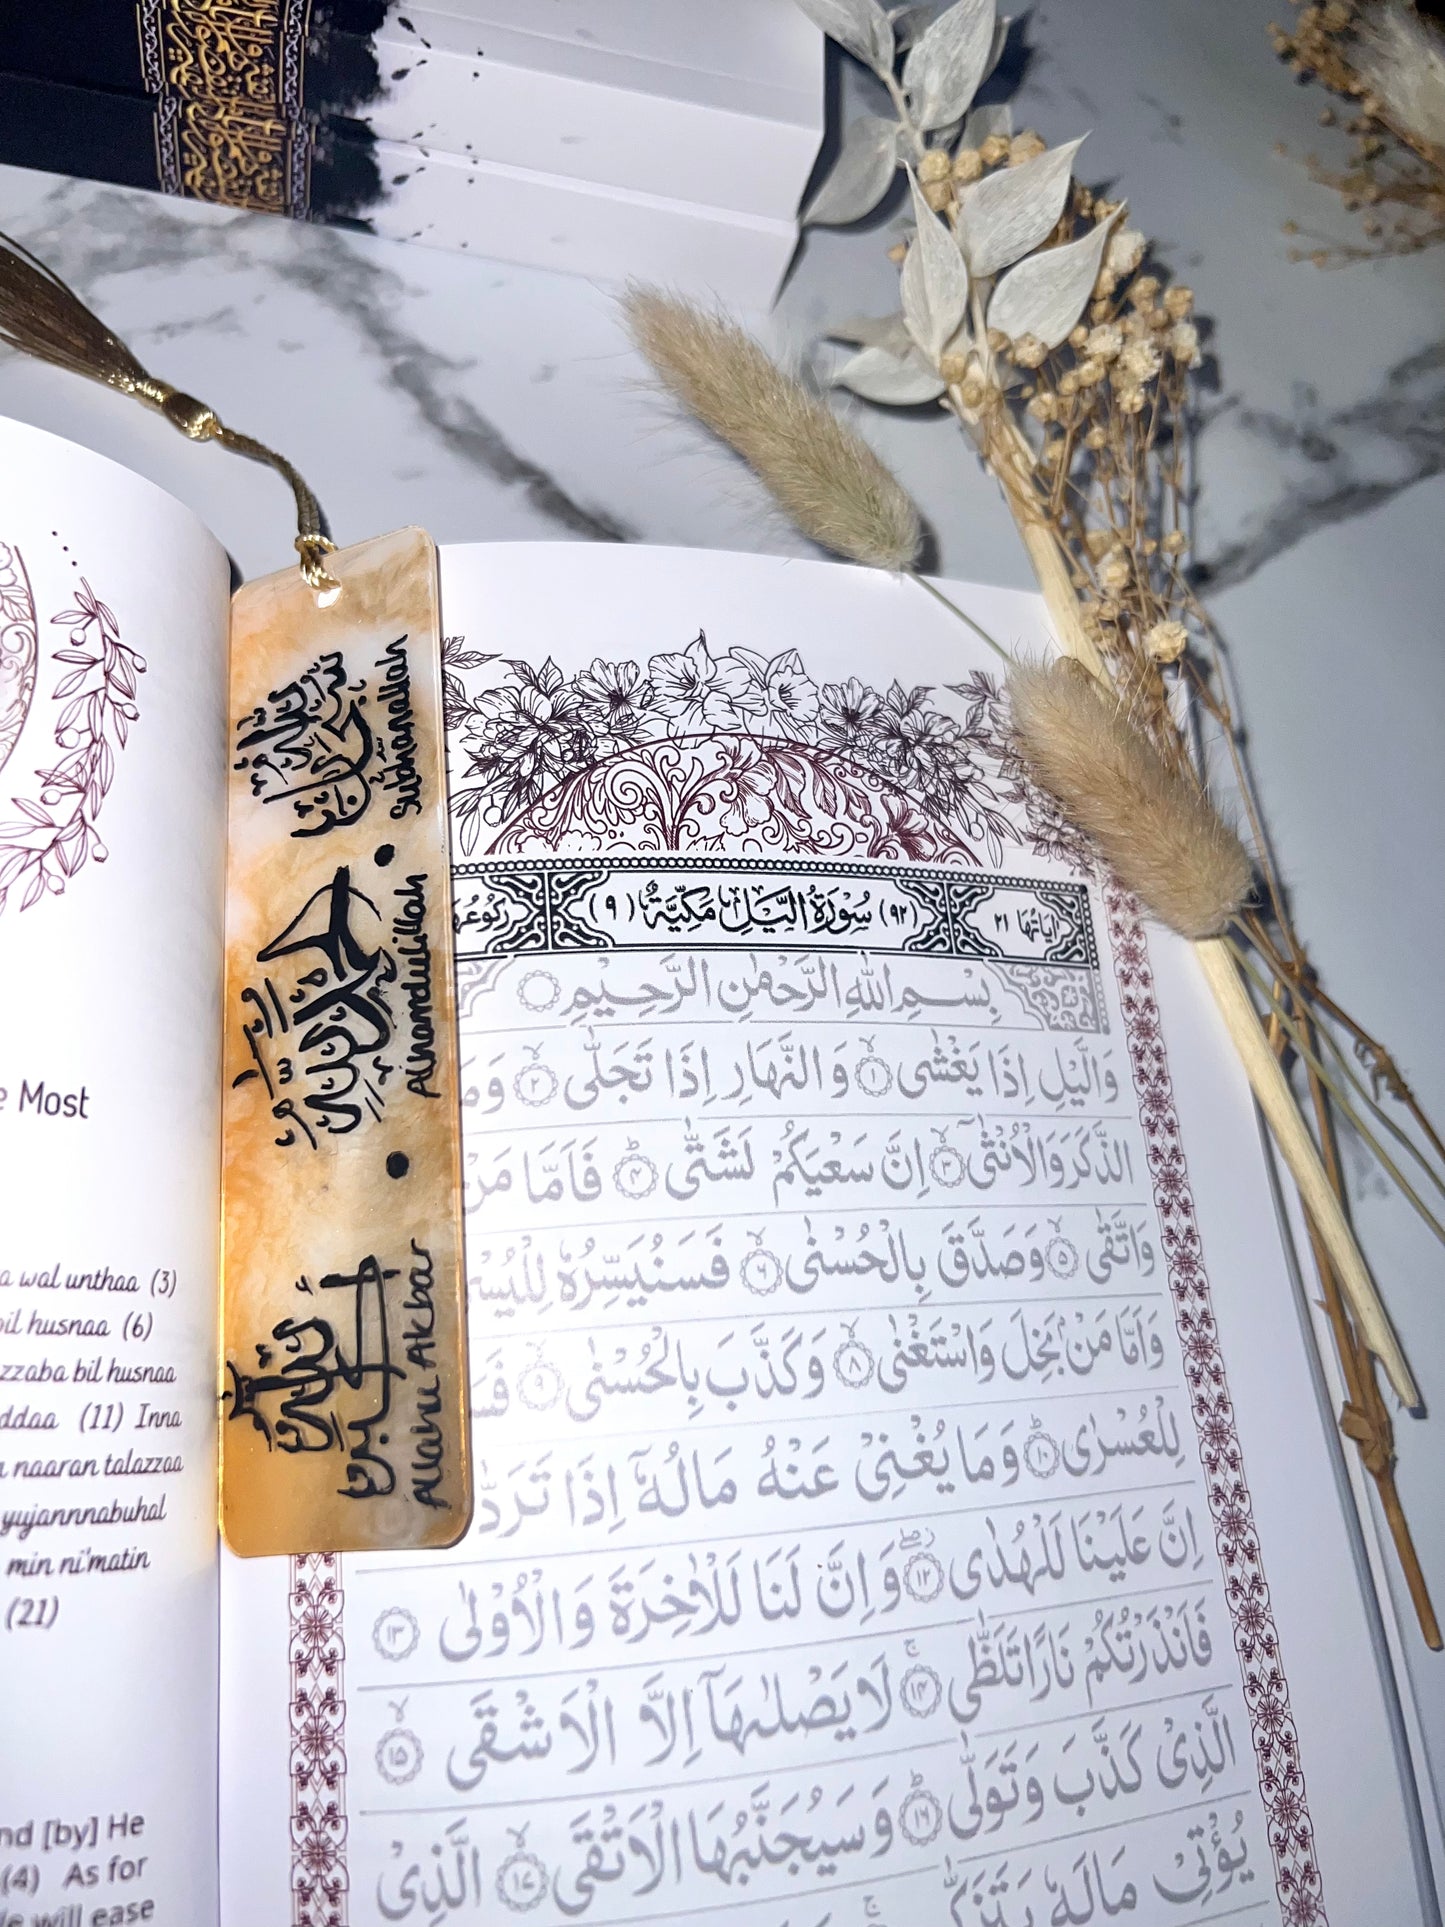 سُبْحَانَ اللّٰهِ
Subhanallah
•
الْحَمْدُ لِلّٰهِ
Alhamdulillah
•
اللّٰهُ أكبر
Allahu Akbar
e Most
a wal unthaa (3)
bil husnaa (6)
zzaba bil husnaa
ddaa (11) Inna
naaran talazzaa
yujannnabuhal
min ni'matin
(21)
nd [by] He
(4) As for
will ease
اٰيَاتُهَا ٢١ (٩٢) سُوْرَةُ الَّيْلِ مَكِّيَّةٌ (٩)
بِسْمِ اللّٰهِ الرَّحْمٰنِ الرَّحِيْمِ
وَالَّيْلِ اِذَا يَغْشٰى ١ وَالنَّهَارِ اِذَا تَجَلّٰى ٢
الذَّكَرَ وَالْاُنْثٰى ٣ اِنَّ سَعْيَكُمْ لَشَتّٰى ٤ فَاَمَّا مَنْ
وَاتَّقٰى ٥ وَصَدَّقَ بِالْحُسْنٰى ٦ فَسَنُيَسِّرُهٗ
وَاَمَّا مَنْۢ بَخِلَ وَاسْتَغْنٰى ٨ وَكَذَّبَ بِالْحُسْنٰى ٩
لِلْعُسْرٰى ١٠ وَمَا يُغْنِيْ عَنْهُ مَالُهٗٓ اِذَا
اِنَّ عَلَيْنَا لَلْهُدٰى ١٢ وَاِنَّ لَنَا لَلْاٰخِرَةَ وَالْاُوْلٰى ١٣
فَاَنْذَرْتُكُمْ نَارًا تَلَظّٰى ١٤ لَا يَصْلٰىهَآ اِلَّا الْاَشْقَى ١٥
الَّذِيْ كَذَّبَ وَتَوَلّٰى ١٦ وَسَيُجَنَّبُهَا الْاَتْقَى ١٧ الَّذِيْ
يُؤْتِيْ مَالَهٗ